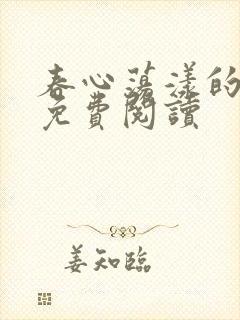 春心蕩漾的
免費閱讀
姜知臨